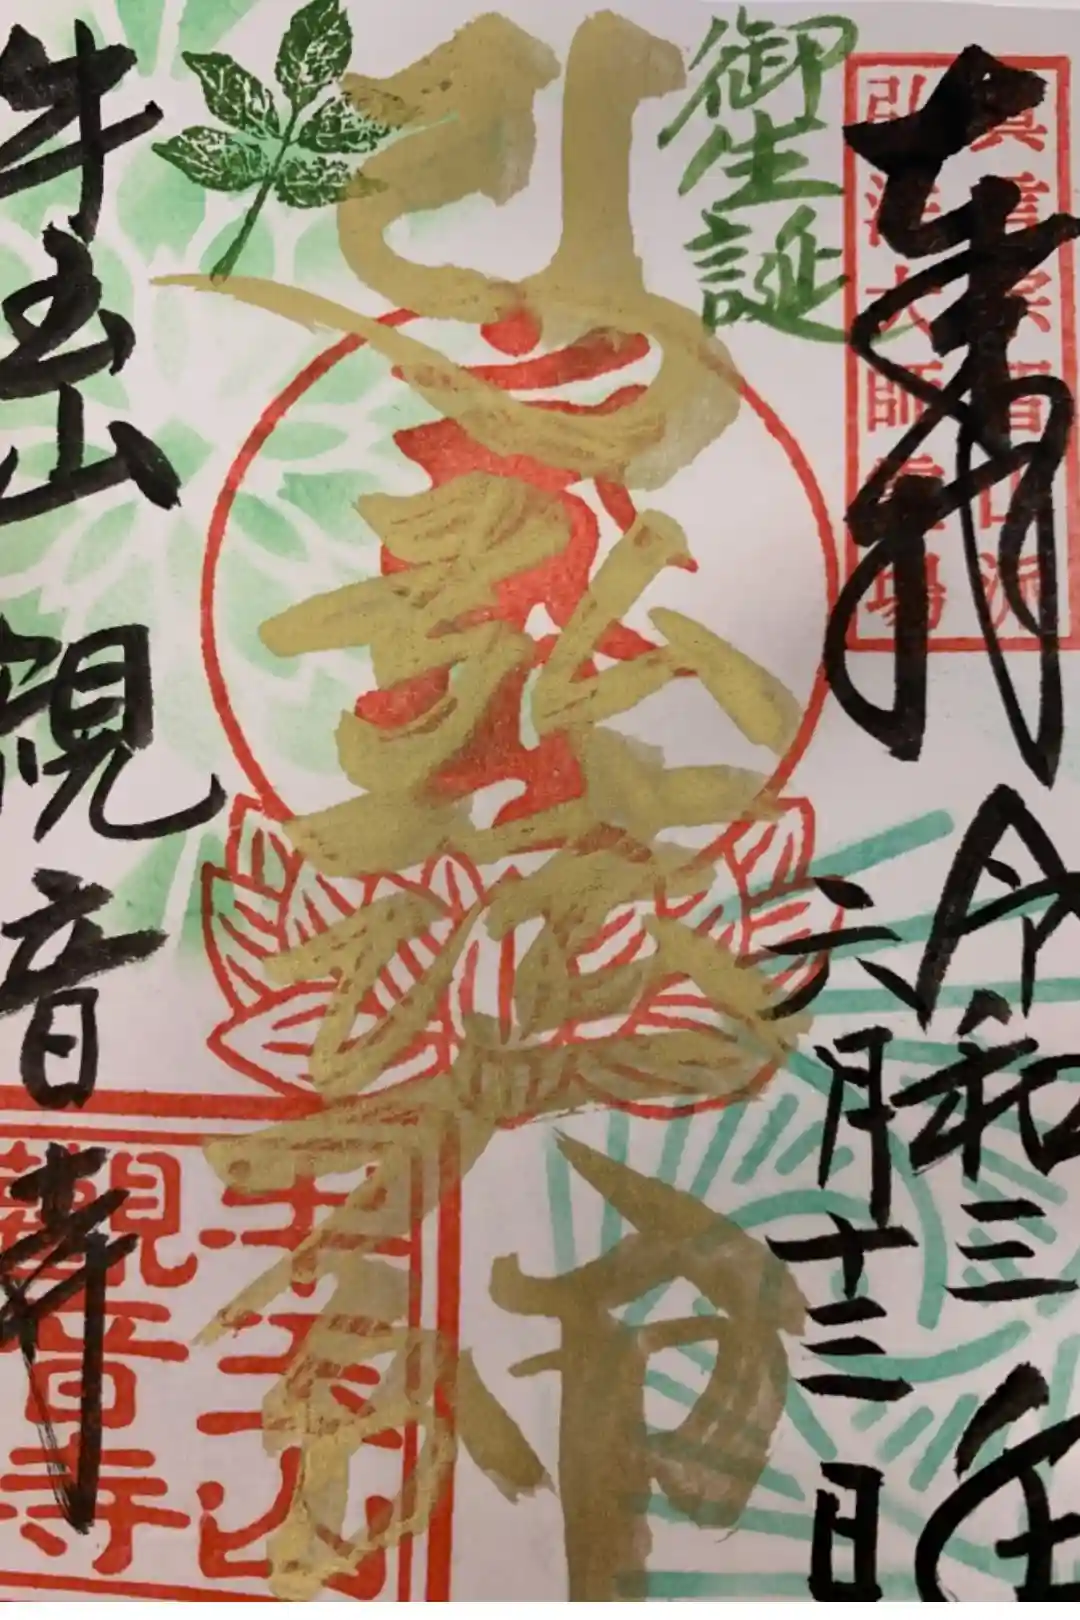 奉拝
眞言宗智山派
弘法大師霊場
令和三年
六月十三日
御生誕
牛玉山観音寺
牛玉山
觀音寺